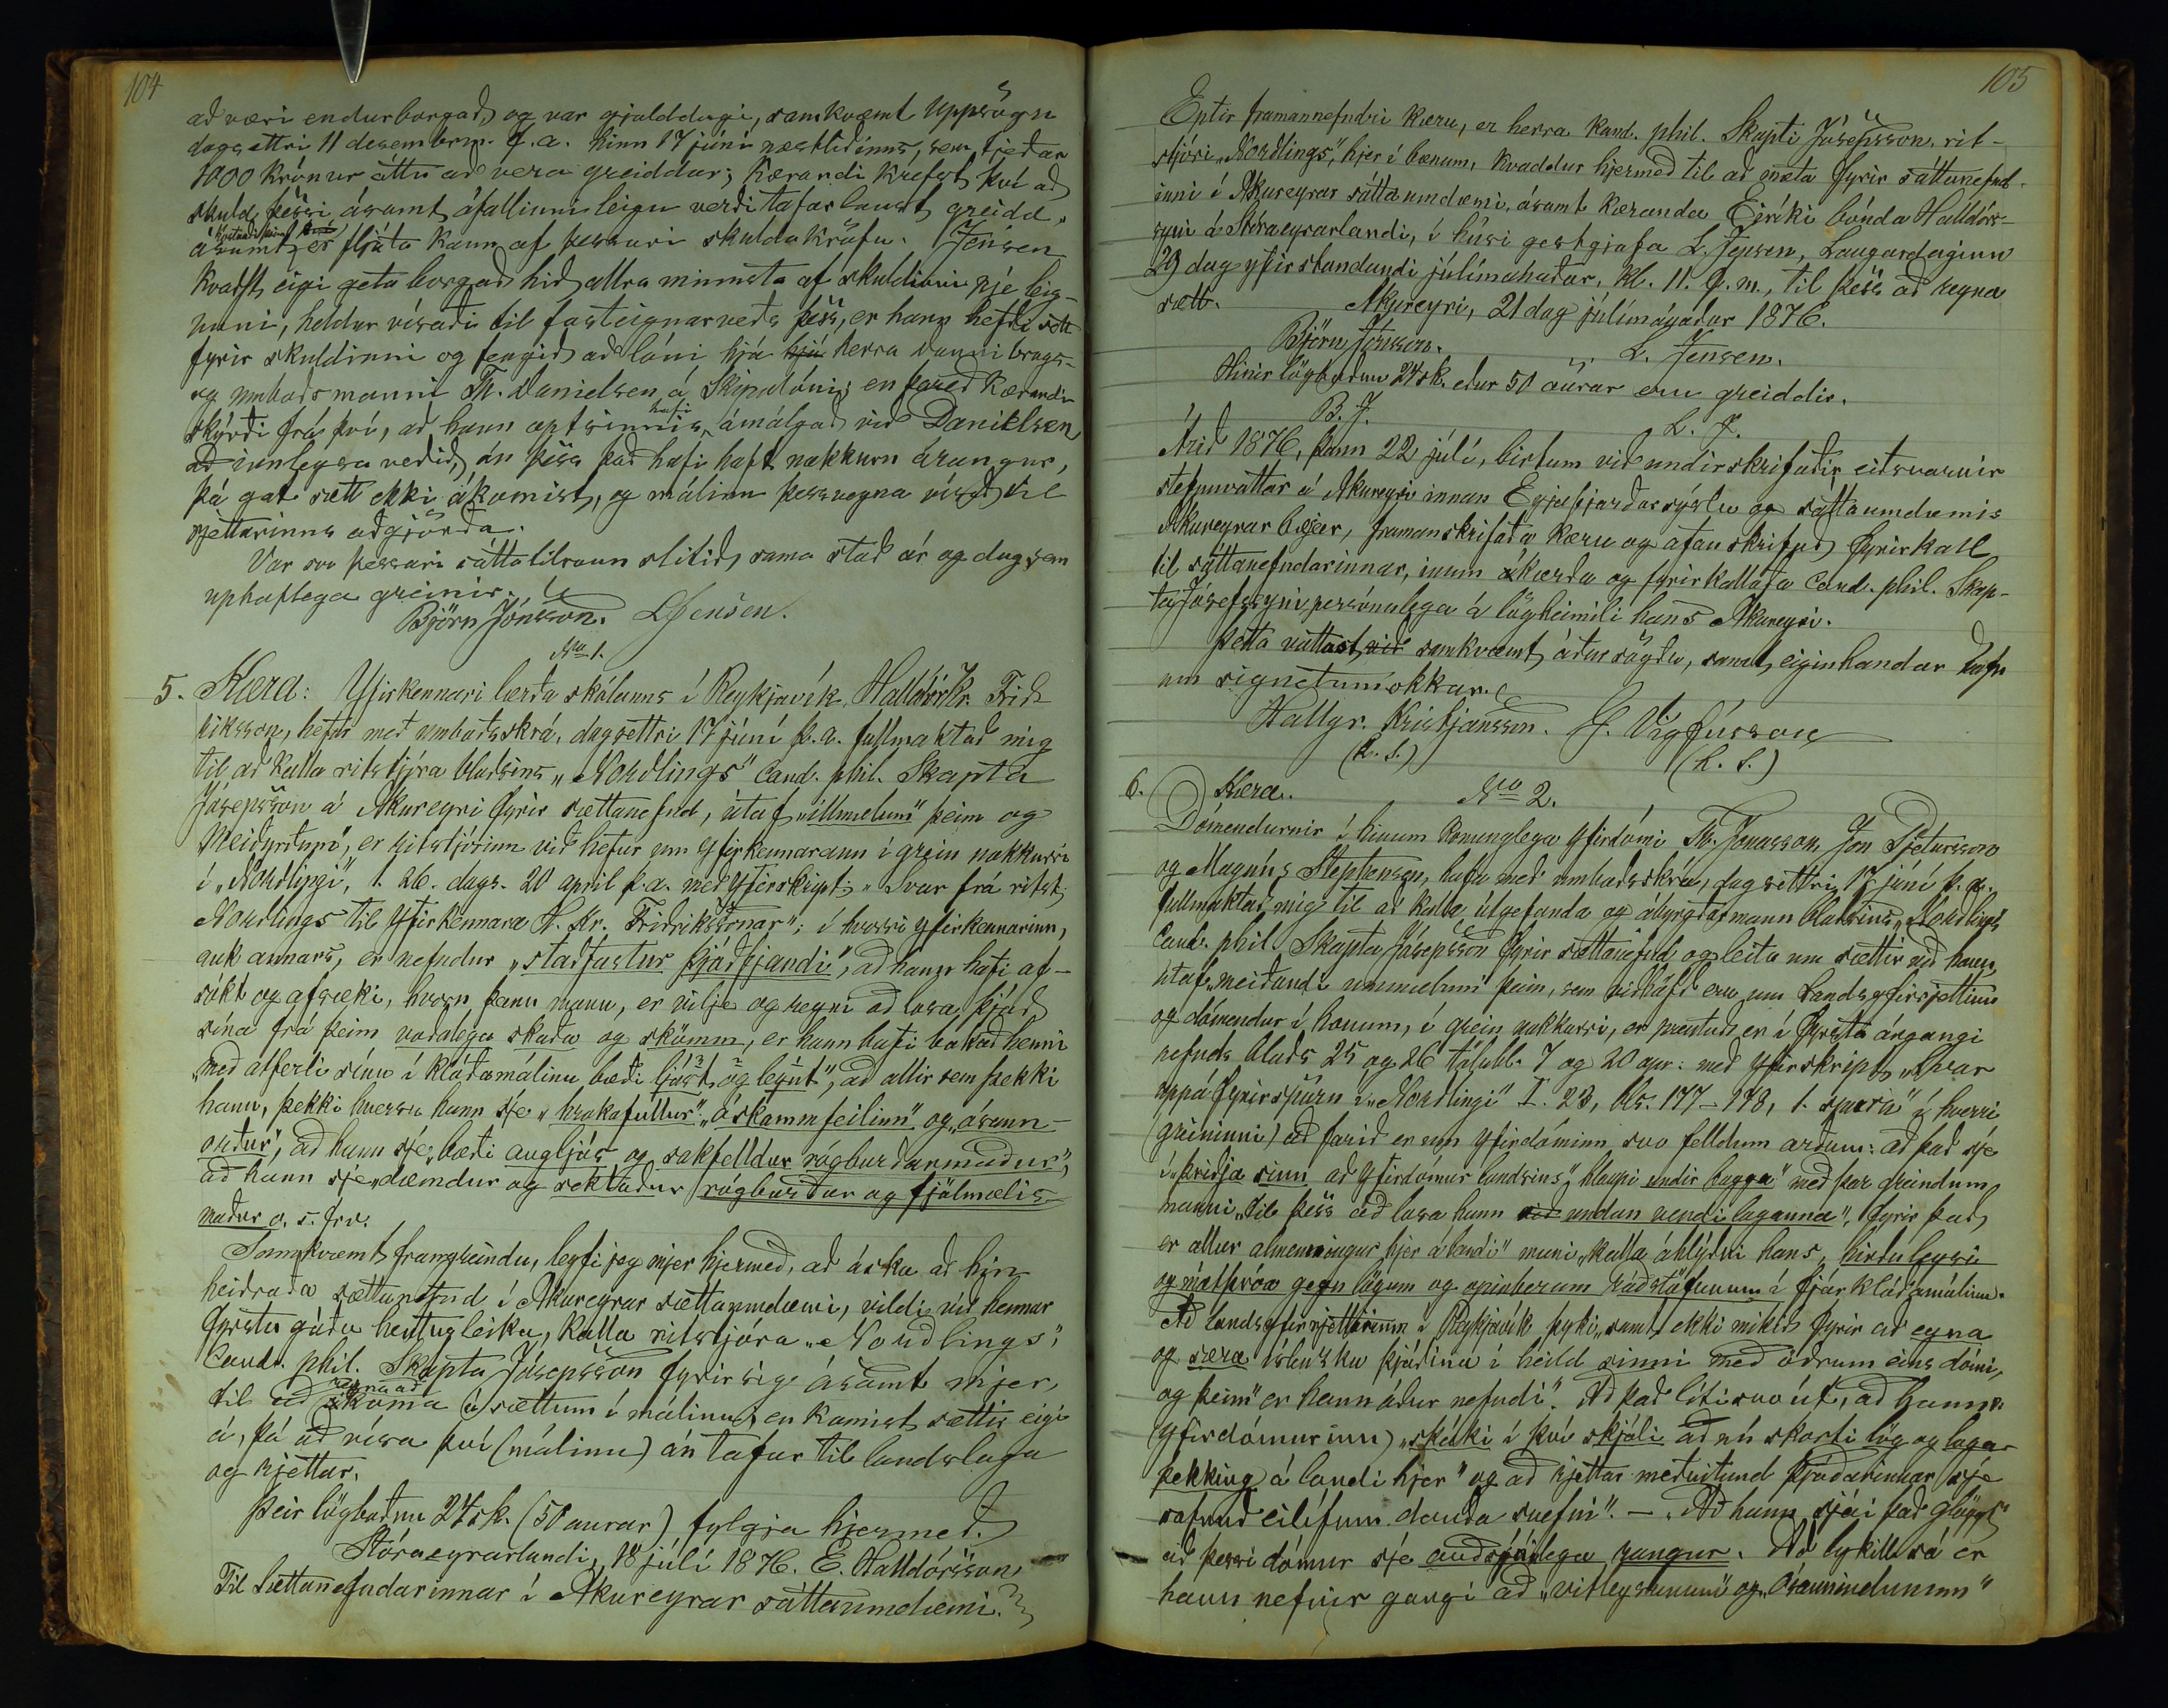 104
að væri endurborgað, og var gjalddagi, samkvæmt uppsögn
dagsettri 11 desembrm. f.a. hinn 17 júní næstliðinn, sem tjeðar
1000 krónur áttu að vera greiddar; Kærandi krefst því að
skuld þessi ásamt áfallinni leigu verði tafarlaust greidd,
ásamt kostnaði þeim er fljóta kann af þessari skuldakröfu. Jensen
kvaðst eigi geta borgað hið allra minnsta af skuldinni nje leig-
unni, heldur vísaði til fasteignarveðs þess, er hann hefði sett
fyrir skuldinni og fengið að láni hjá hjá herra dannibrogs-
og umboðsmanni Th. Danielsen á Skipalóni; en með Kærandi
skýrði frá því, að hann optsinnis hafi ámálgað við Danielsen
að innleysa veðið, án þess það hafi haft nokkurn árangur,
þá gat sætt ekki ákomist, og málinu þessvegna vísað til
rjettarinns aðgjörða.
Var svo þessari sáttatilraun slitið, sama stað ár og dag sem
uphaflega greinir.
Björn Jónsson. L Jensen.
No 1.
5. Kæra: Yfirkennari lærða skólanns í Reykjavík, Halldór Kr. Frið-
riksson, hefur með umboðsskrá, dagsettri 17 júní þ.a. fullmaktað mig
til að kalla ritstjóra blaðsins „Norðlings" Cand. phil. Skapta
Jósepsson á Akureyri fyrir sættanefnd, útaf „illmælum" þeim og
meiðyrðum", er ritstjórinn við hefur um yfirkennarann í grein nokkurri
í „Norðlingi", 1. 26. dags. 20 april þ.a. með yfirskript; „Svar frá ritst.
Norðlings til yfirkennara H. Kr. Friðrikssonar"; í hverri yfirkennarinn,
auk annars, er nefndur „staðfastur þjóðfjandi", að hann hafi af-
sókt og afsæki, hvern þann mann, er vilje og reyni að losa þjóð
sína frá þeim voðalega skaða og skömm, er hann hafi bakað henni
„með atferli sínu í kláðamálinu bæði ljóst og leynt", að allir sem þekki
hann, þekki hversu hann sje „hrokafullur" „óskammfeilinn" og „ósann-
orður", að hann sje „bæði augljós og sakfelldur rógburðarmaður",
að hann sje „dæmdur og sektaður rógburðar og fjölmælis-
maður o. s. frv.
Samkvæmt framgreindu, leyfi jeg mjer hjermeð, að áska að hin
heiðraða sættanefnd í Akureyrar sættaumdæmi, vildi við hennar
fyrstu góðu hentugleika, kalla ritstjóra „Norðlings",
Cand. phil. Skapta Jósepsson fyrir sig ásamt mjer,
til að reyna að koma á sættum í málinu, en komist sættir eigi
á, þá að vísa því (málinu) án tafar til landslaga
og rjettar.
Þeir lögboðnu 24 sk. (50 aurar) fylgja hjermeð.
Stóraeyrarlandi, 18 júlí 1876. E. Halldórsson.
Til Sættanefndarinnar í Akureyrar sáttaumdæmi.
105
Eptir framannefndri kæru, er herra kand. phil. Skapti Jósepsson, rit-
stjóri „Norðlings", hjer í bænum, kvaddur hjermeð til að mæta fyrir sáttanefnd-
inni í Akureyrar sáttaumdæmi, ásamt kæranda Eiríki bónda Halldórs-
syni á Stóraeyrarlandi, í húsi gestgjafa L. Jensen, Laugardaginn
29 dag yfirstandandi júlímánaðar, kl. 11. f.m., til þess að reyna
sætt. Akureyri, 21 dag júlímánaðar 1876.
Björn Jónsson. L. Jensen.
Hinir lögboðnu 24 sk. eður 50 aurar eru greiddir.
B. J. L. J.
Árið 1876, þann 22 júlí, birtum við undirskrifaðir, eiðsvarnir
stefnuvottar á Akureyri innan Eyjafjarðarsýslu og sáttaumdæmis
Akureyrar bæjer, framanskrifaða kæru og áfanskrifað fyrirkall
til sáttanefndarinnar, inum ákærða og fyrirkallaða Cand. phil. Skap-
ta Jósefssyni persónulega á lögheimili hans Akureyri.
Þetta vottast, við samkvæmt áður sögðu, samt, eiginhandar nöfn
um signetum okkar.
Hallgr. Kristjánsson. J. Vigfússon
(L. S.) (L. S.)
6. Kæra. No 2.
Dómendurnir í hinum konunglega yfirdómi Th. Jónasson, Jón Pjetursson
og Magnús Stephensen, hafa með umboðsskrá, dagsettri 17 júní þ. a.
fullmaktað mig til að kalla útgefanda og ábyrgðarmann blaðsins „Norðlings
Cand. phil. Skapta Jósepsson fyrir sættanefnd og leita um sættir við hann,
útaf „meiðandi ummælum" þeim, sem viðhöfð eru um Landsyfirrjettinn
og dómendur í honum, í grein nokkurri, er prentuð er í fyrsta árgangi
nefnds blaðs 25 og 26 tölubl. 7 og 20 apr: með yfirskript „Svar
uppá fyrirspurn í „Norðlingi" I. 23, bls. 177-178, 1. spura" í hverri
(greininni) að farið er um yfirdóminn svo felldum orðum: að það sje
í „þriðja sinn að yfirdómur landsins" hlaupi undir bagga" með þar greindum
manni „til þess að losa hann við undan vendi laganna", fyrir það,
er allur almenningur hjer á landi" muni „kalla óhlýðni hans, hirðuleysi
og mótþróa gegn lögum og opinberum ráðstöfunum í fjárkláðamálinu.
Að landsyfirrjettörinum í Reykjavík þyki, samt, ekki mikið fyrir að egna
og særa íslensku þjóðina í heild sinni með öðrum eins dómi,
og þeim" er hann áður nefndi". Að það líti svo út, að hann
(yfirdómurinn) „skáki í því skjóli að nú skorti lög og laga-
þekking á landi hjer" og að rjettar meðvitund þjóðarinnar sje
sofnuð eilífum dauða svefni". — „Að hann sjái það glöggt
að þessi dómur sje auðsjáilega rangur. Að lykill sá er
hann nefnir gangi að „vitleysunum" og „ósannindunum"